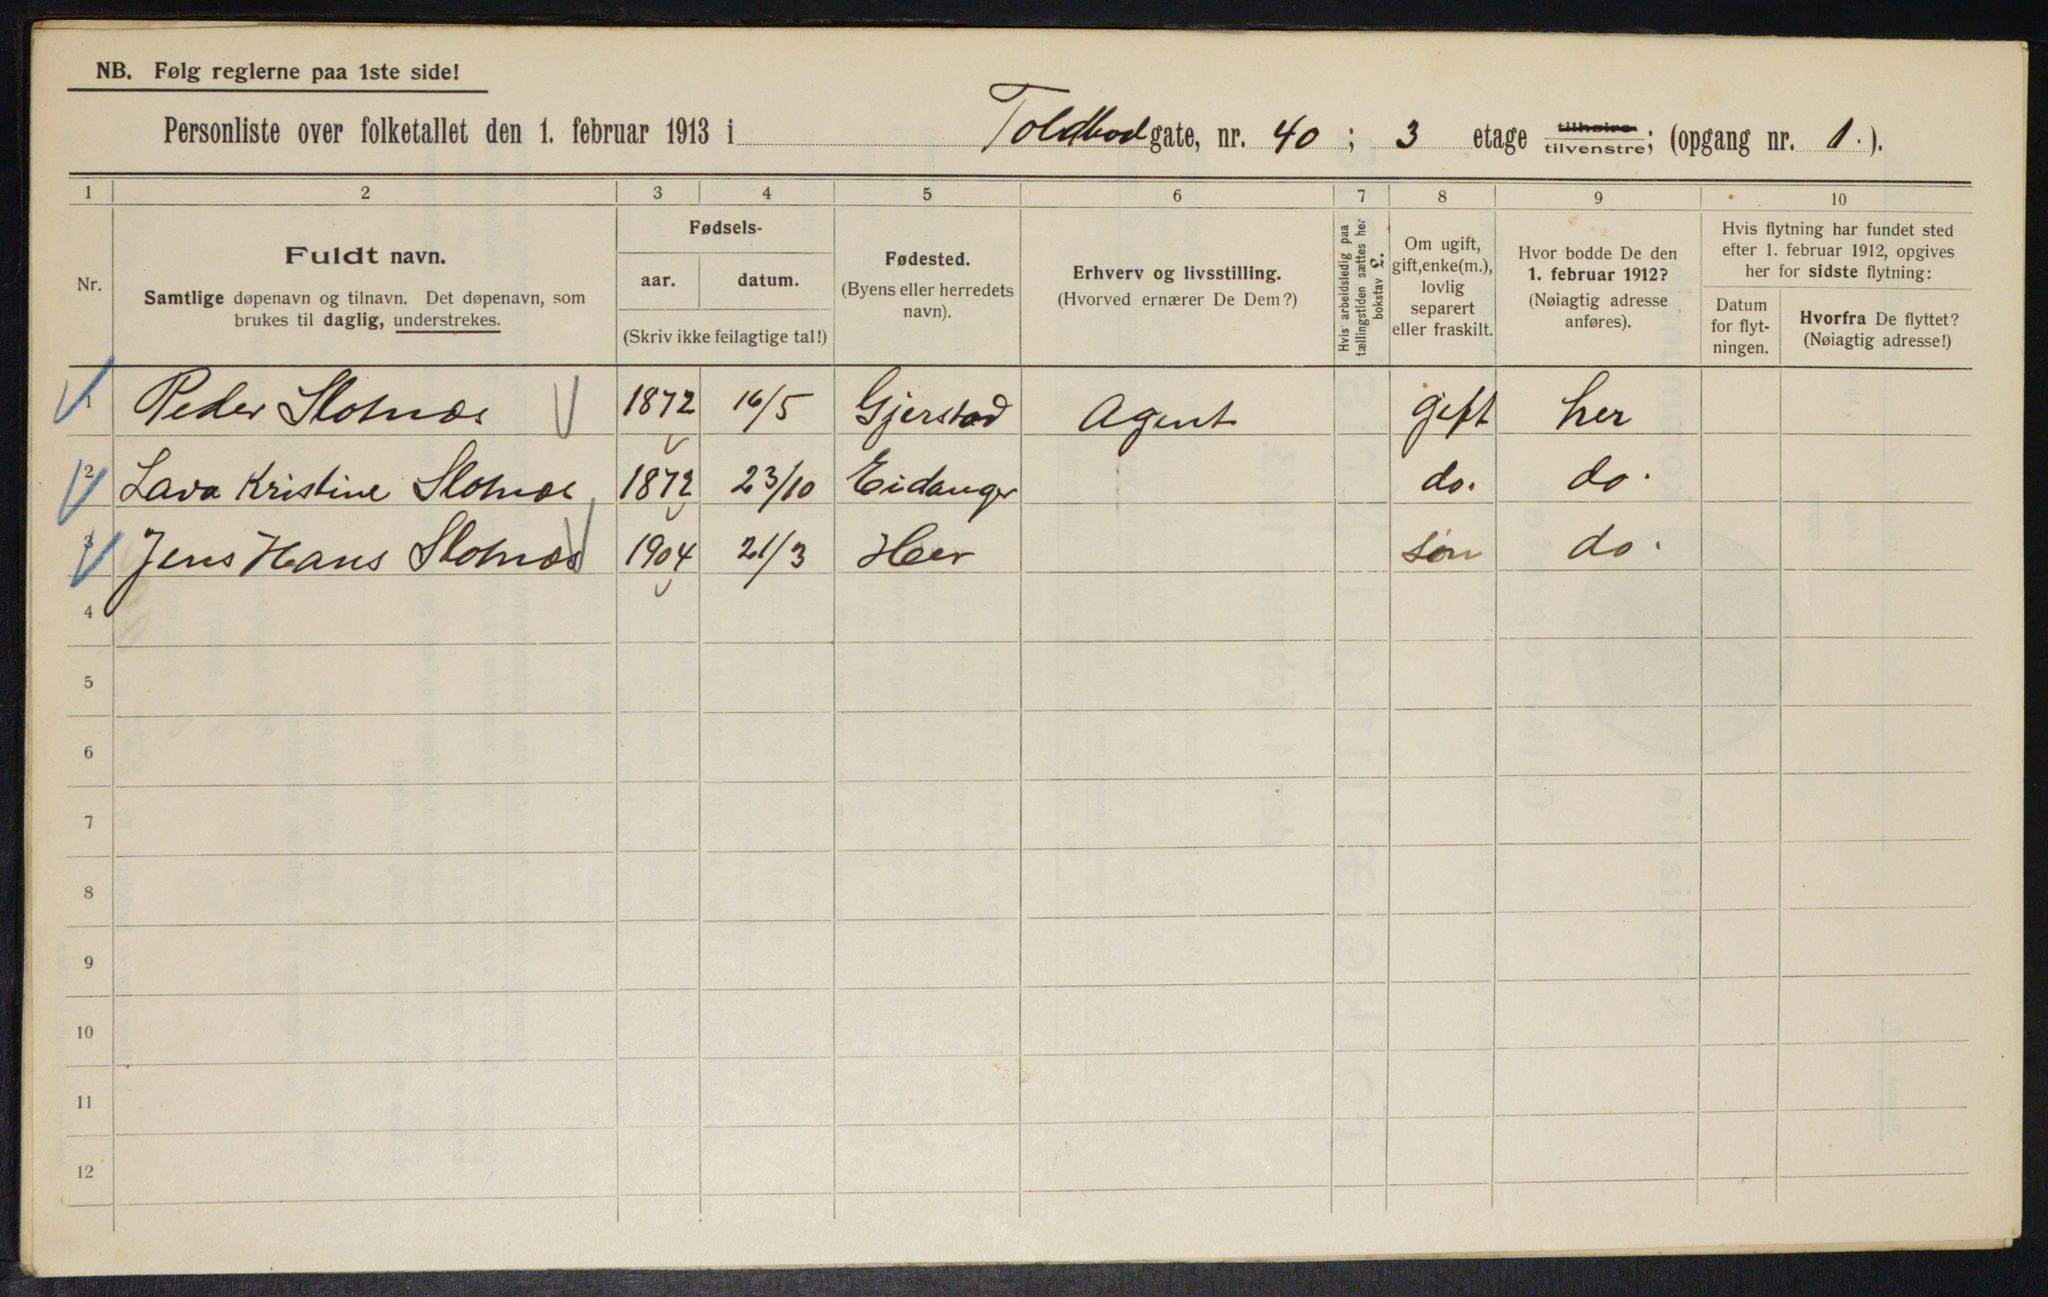 NB. Følg reglerne paa 1ste side!
Personliste over folketallet den 1. februar 1913 i Toldbodgate, nr. 40 ; 3 etage tilhøire tilvenstre; (opgang nr. 1. ).
1 2 3 4 5 6 7 8 9 10
Nr.
Fuldt navn.
Samtlige døpenavn og tilnavn. Det døpenavn, som
brukes til daglig, understrekes.
Fødsels-
aar. datum.
(Skriv ikke feilagtige tal!)
Fødested.
(Byens eller herredets
navn).
Erhverv og livsstilling.
(Hvorved ernærer De Dem?)
Hvis arbeidsledig paa
tællingstiden sættes her
bokstav L.
Om ugift,
gift, enke(m.),
lovlig
separert
eller fraskilt.
Hvor bodde De den
1. februar 1912?
(Nøiagtig adresse
anføres).
Hvis flytning har fundet sted
efter 1. februar 1912, opgives
her for sidste flytning:
Datum
for flyt-
ningen.
Hvorfra De flyttet?
(Nøiagtig adresse!)
1 Peder Slotnæs 1872 16/5 Gjerstad Agent gift her
2 Lava Kristine Slotnæs 1872 23/10 Eidanger do. do.
3 Jens Hans Slotnæs 1904 21/3 Her søn do.
4
5
6
7
8
9
10
11
12